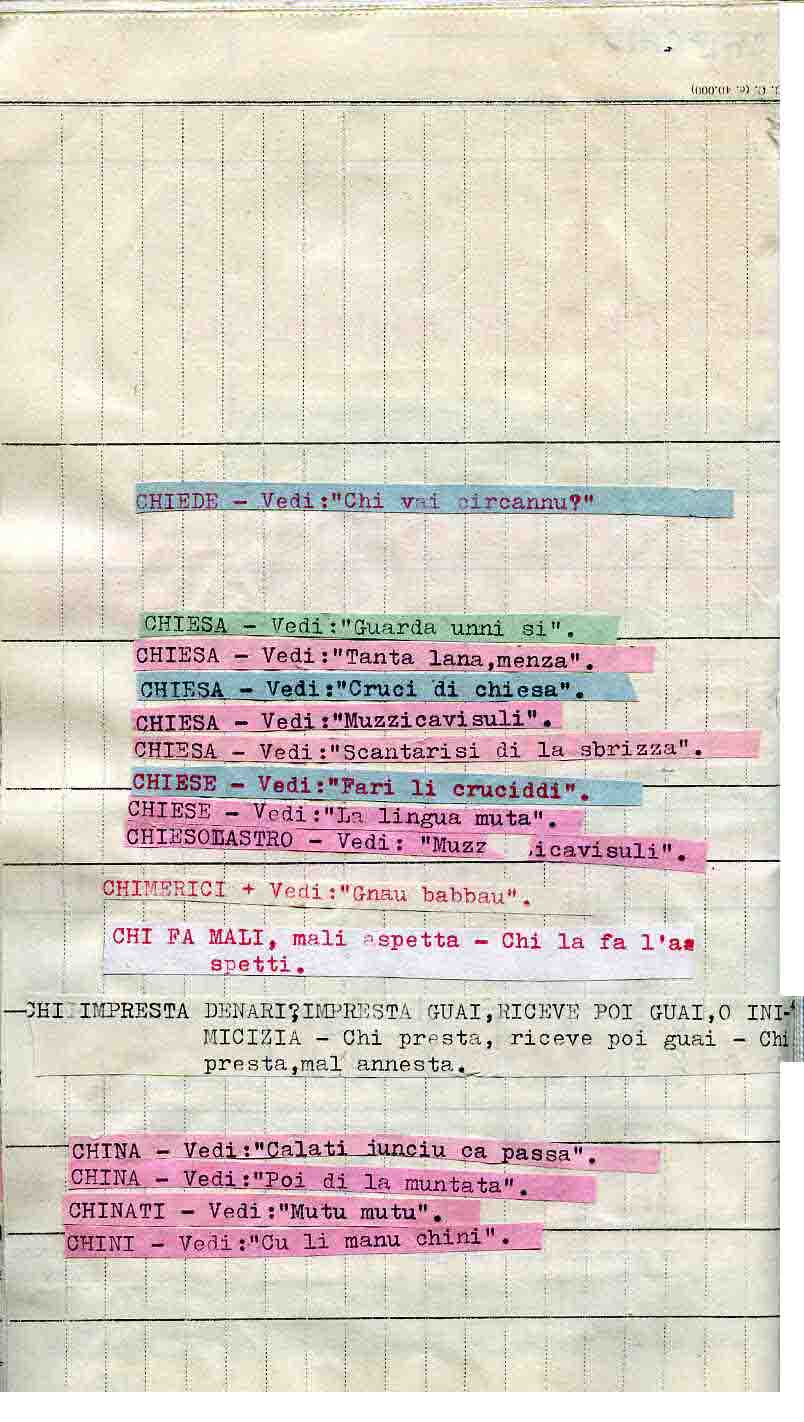 C. (c. 40.000)
CHIEDE - Vedi:"Chi vai circannu?"
CHIESA - Vedi:"Guarda unni si".
CHIESA - Vedi:"Tanta lana,menza".
CHIESA - Vedi:"Cruci di chiesa".
CHIESA - Vedi:"Muzzicavisuli".
CHIESA - Vedi:"Scantarisi di la sbrizza".
CHIESE - Vedi:"Fari li cruciddi".
CHIESE - Vedi:"La lingua muta".
CHIESOLASTRO - Vedi: "Muzz icavisuli".
CHIMERICI + Vedi:"Gnau babbau".
CHI FA MALI, mali aspetta - Chi la fa l'as
spetti.
CHI IMPRESTA DENARI?IMPRESTA GUAI,RICEVE POI GUAI,O INI-
MICIZIA - Chi presta, riceve poi guai - Chi
presta,mal annesta.
CHINA - Vedi:"Calati iunciu ca passa".
CHINA - Vedi:"Poi di la muntata".
CHINATI - Vedi:"Mutu mutu".
CHINI - Vedi:"Cu li manu chini".